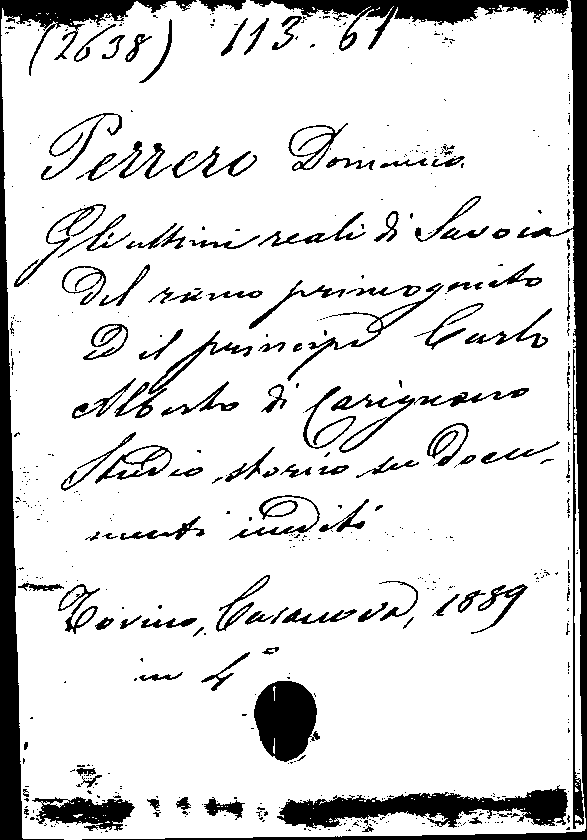 (2638) 113.61
Perrero Domenico
Gli ultimi reali di Savoia
del ramo primogenito
ed il principe Carlo
Alberto di Carignano
Studio storico su docu-
menti inediti
Torino, Casanova, 1889
in 4°